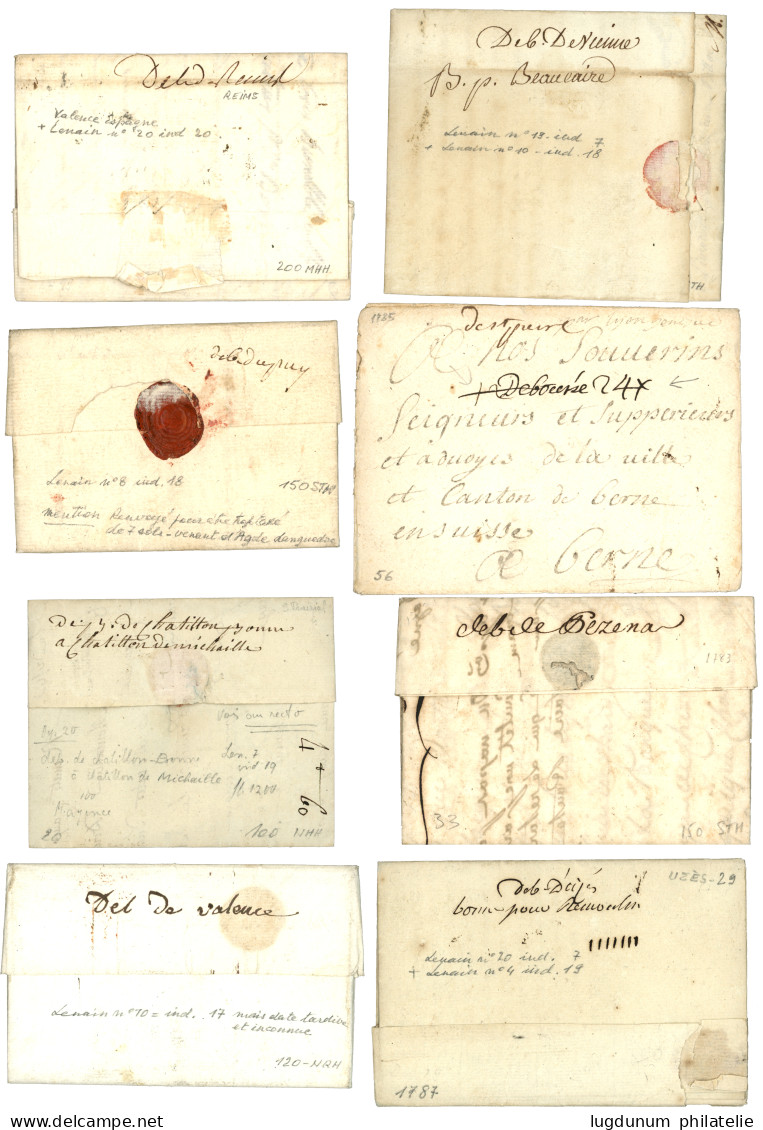 Deb d. Reims
REIMS
Valence espagne
+ Lenain n° 20 ind 20.
200 MHH.
Deb. De Vienne
B. p. Beaucaire
Lenain n° 13 - ind 7
+ Lenain n° 10 - ind. 18
STH
deb. du puy
Lenain n° 8 ind. 18
150 STH
mention Renvoyé pour être
de 7 sols - venant d'Agde Languedoc
1785
A nos Souuerins
+ Debourse 24x
Seigneurs et Supperieurs
et aduoyes de la ville
et Canton de Berne
en Suisse
A Berne
56
De p. p. de Chatillon
a Chatillon de michaille
Voir au recto
Dep. de chatillon-
à châtillon de Michaille
Len. 7
ind 19
1200
4 + 60
100
Mayence
20
100 MHH
deb de Pezena
1783
33
150 STH
Deb de valence
Lenain n° 10 = ind. 17 mais date tardive
et inconnue
120-MHH
UZES-29
Deb. D'uzés
bonne pour Remoulin
Lenain n° 20 ind. 7
+ Lenain n° 4 ind. 19
1787
www.delcampe.net
lugdunum philatelie